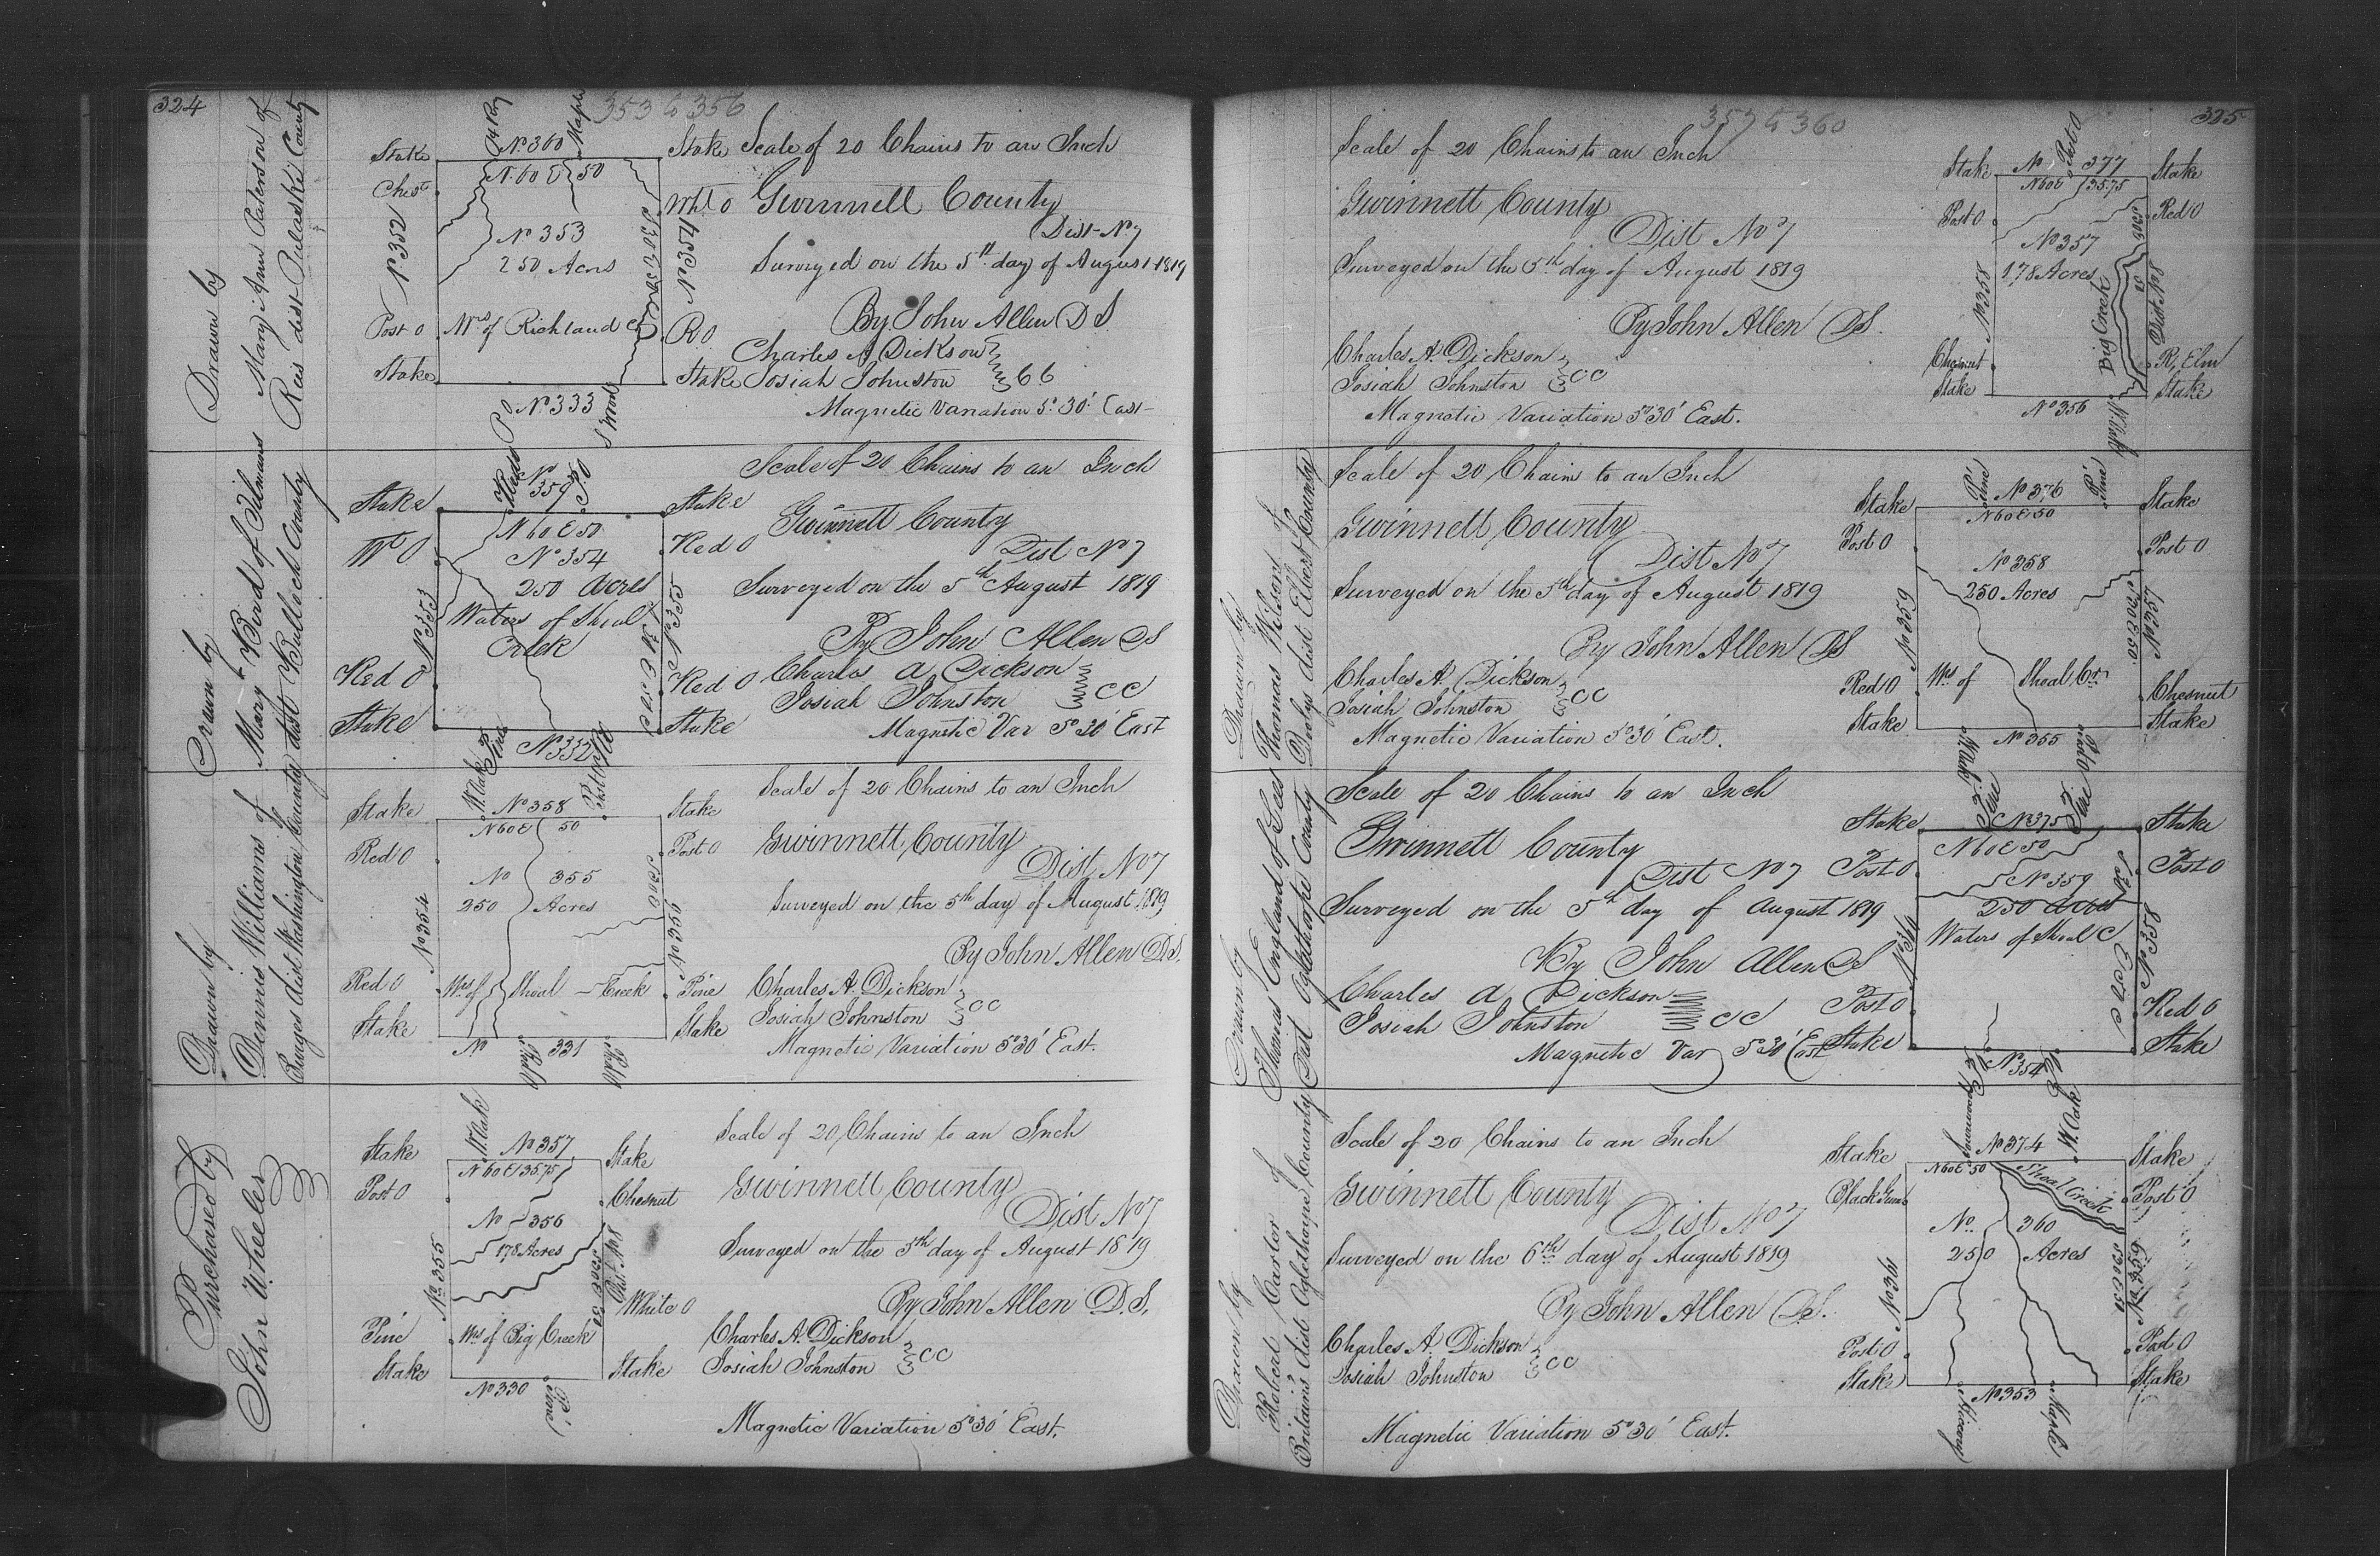 324
353 to 356
Drawn by
Mary Ann Paterson of
Ras dist Pulaski County
Stake
Chest
Post O
Stake
Nº 360
Maple
N 60 E 50
Nº 353
250 Acres
Wrs of Richland C
Nº 352
Nº 354
S 30 E 50
Nº 333
P O
Stake
Wht O
R O
Stake
Scale of 20 Chains to an Inch
Gwinnett County
Dist Nº 7
Surveyed on the 5th day of August 1819
By John Allen D S
Charles A Dickson
Josiah Johnston } C C
Magnetic Variation 5º 30' East
Drawn by
Mary Bird of Tilmans
dist Bulloch County
Stake
Wt O
Red O
Stake
Red O
Nº 359
P O
N 60 E 50
Nº 354
250 Acres
Waters of Shoal
Creek
Nº 353
Nº 355
S 30 E 50
Nº 332
Pine
Stake
Red O
Red O
Stake
Scale of 20 Chains to an Inch
Gwinnett County
Dist Nº 7
Surveyed on the 5th August 1819
By John Allen D S
Charles A Dickson
Josiah Johnston } C C
Magnetic Var 5º 30' East
Drawn by
Dennis Williams of
Pages dist Washington County
Stake
Red O
Red O
Stake
W. Oak
Nº 358
Post O
N 60 E 50
Nº 355
250 Acres
Wrs of Shoal Creek
Nº 354
Nº 356
S 30 E
Nº 331
Red O
Stake
Post O
Pine
Stake
Scale of 20 Chains to an Inch
Gwinnett County
Dist Nº 7
Surveyed on the 5th day of August 1819
By John Allen D.S.
Charles A. Dickson
Josiah Johnston } C C
Magnetic Variation 5º 30' East.
Purchased by
John Wheeler
Stake
Post O
Pine
Stake
W. Oak
Nº 357
N 60 E 35.75
Nº 356
178 Acres
Wrs of Big Creek
Nº 355
S 30 E 50
Dist Nº 8
Nº 330
Pine
Stake
Chesnut
White O
Stake
Scale of 20 Chains to an Inch
Gwinnett County
Dist Nº 7
Surveyed on the 5th day of August 1819
By John Allen D.S.
Charles A. Dickson
Josiah Johnston } C C
Magnetic Variation 5º 30' East.
325
357 to 360
Scale of 20 Chains to an Inch
Gwinnett County
Dist Nº 7
Surveyed on the 5th day of August 1819
By John Allen DS.
Charles A. Dickson
Josiah Johnston } C C
Magnetic Variation 5º 30' East.
Stake
Post O
Chesnut
Stake
Post O
Nº 377
N 60 E 35.75
Nº 357
178 Acres
Big Creek
Nº 358
S 30 E 50
Dist Nº 8
Nº 356
W. Oak
Stake
Red O
R, Elm
Stake
Drawn by
Thomas Wilson of
Doolys dist Elbert County
Scale of 20 Chains to an Inch
Gwinnett County
Dist Nº 7
Surveyed on the 5th day of August 1819
By John Allen DS
Charles A. Dickson
Josiah Johnston } C C
Magnetic Variation 5º 30' East.
Stake
Post O
Red O
Stake
Pine
Nº 376
Pine
N 60 E 50
Nº 358
250 Acres
Wrs of Shoal Cr.
Nº 359
Nº 357
S 30 E 50
Nº 355
W. Oak
Post O
Stake
Post O
Chesnut
Stake
Drawn by
Thomas England of Lees
Dist Oglethorpe County
Scale of 20 Chains to an Inch
Gwinnett County
Dist Nº 7
Surveyed on the 5th day of August 1819
By John Allen DS
Charles A Dickson
Josiah Johnston } C C
Magnetic Var 5º 30' East
Stake
Post O
Post O
Stake
Pine
Nº 375
Pine
N 60 E 50
Nº 359
250 Acres
Waters of Shoal C
Nº 358
S 30 E 50
Nº 354
Stake
Post O
Red O
Stake
Drawn by
Robert Carter of
Britains dist Oglethorpe County
Scale of 20 Chains to an Inch
Gwinnett County
Dist Nº 7
Surveyed on the 6th day of August 1819
By John Allen DS.
Charles A. Dickson
Josiah Johnston } C C
Magnetic Variation 5º 30' East.
Stake
Black Gum
Post O
Stake
Sourwood
Nº 374
W. Oak
N 60 E 50
Shoal Creek
Nº 360
250 Acres
Nº 361
Nº 359
S 30 E 50
Nº 353
Hickory
Maple
Stake
Post O
Post O
Stake